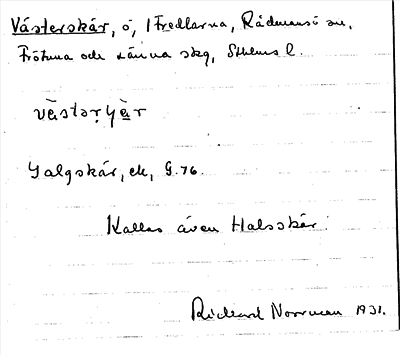 Västerskär, ö, i Fredlarna, Rådmansö sn,
Frötuna och Länna skg, Sthlms l.
västərʃä̀r
Galgskär, ek, G.76.
Kallas även Halsskär
Rickard Norrman 1931.